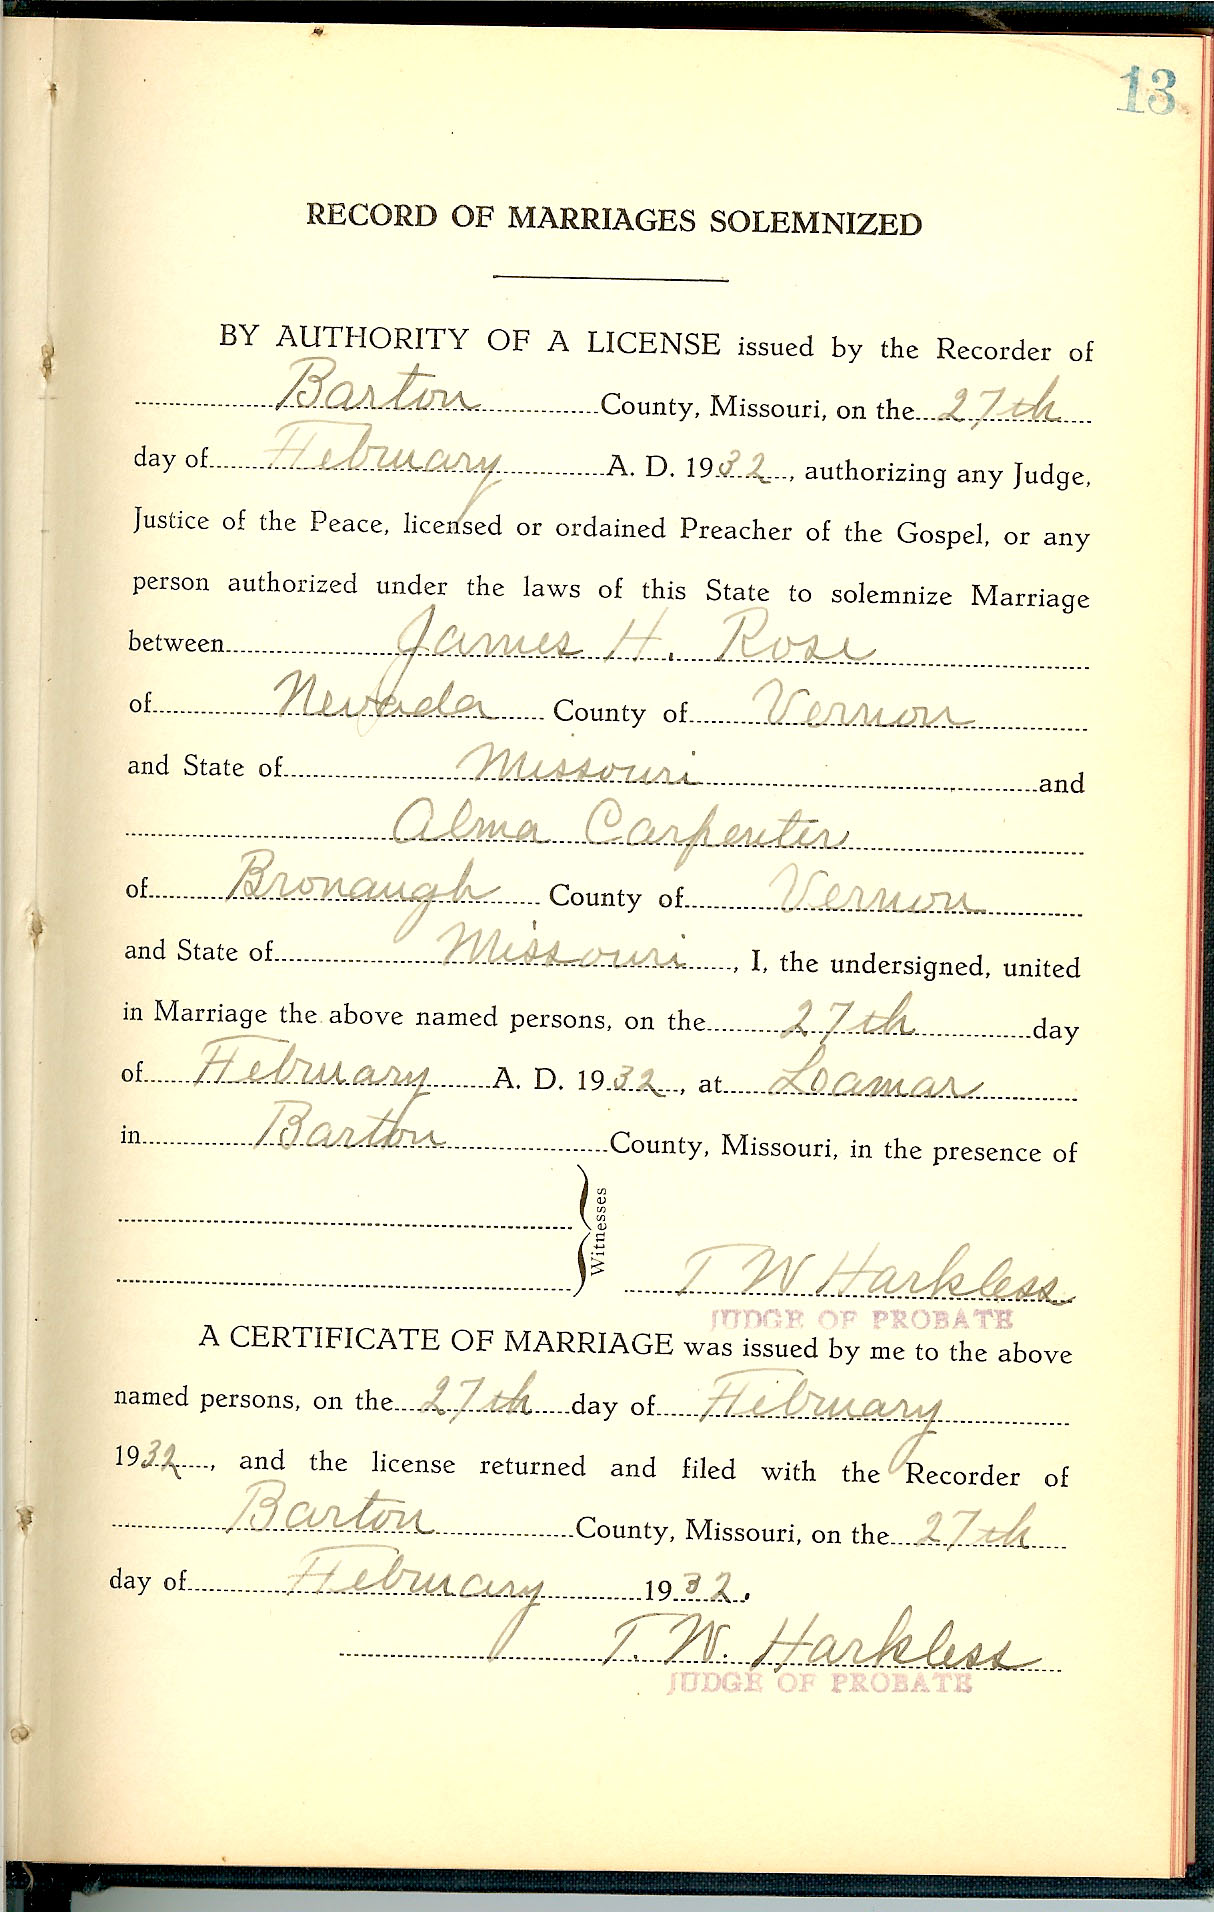 13
RECORD OF MARRIAGES SOLEMNIZED
BY AUTHORITY OF A LICENSE issued by the Recorder of
Barton County, Missouri, on the 27th
day of February A. D. 1932, authorizing any Judge,
Justice of the Peace, licensed or ordained Preacher of the Gospel, or any
person authorized under the laws of this State to solemnize Marriage
between James H. Rose
of Nevada County of Vernon
and State of Missouri and
Alma Carpenter
of Bronaugh County of Vernon
and State of Missouri, I, the undersigned, united
in Marriage the above named persons, on the 27th day
of February A. D. 1932, at Loamar
in Barton County, Missouri, in the presence of
Witnesses
T W Harkless
JUDGE OF PROBATE
A CERTIFICATE OF MARRIAGE was issued by me to the above
named persons, on the 27th day of February
1932, and the license returned and filed with the Recorder of
Barton County, Missouri, on the 27th
day of February 1932.
T. W. Harkless
JUDGE OF PROBATE